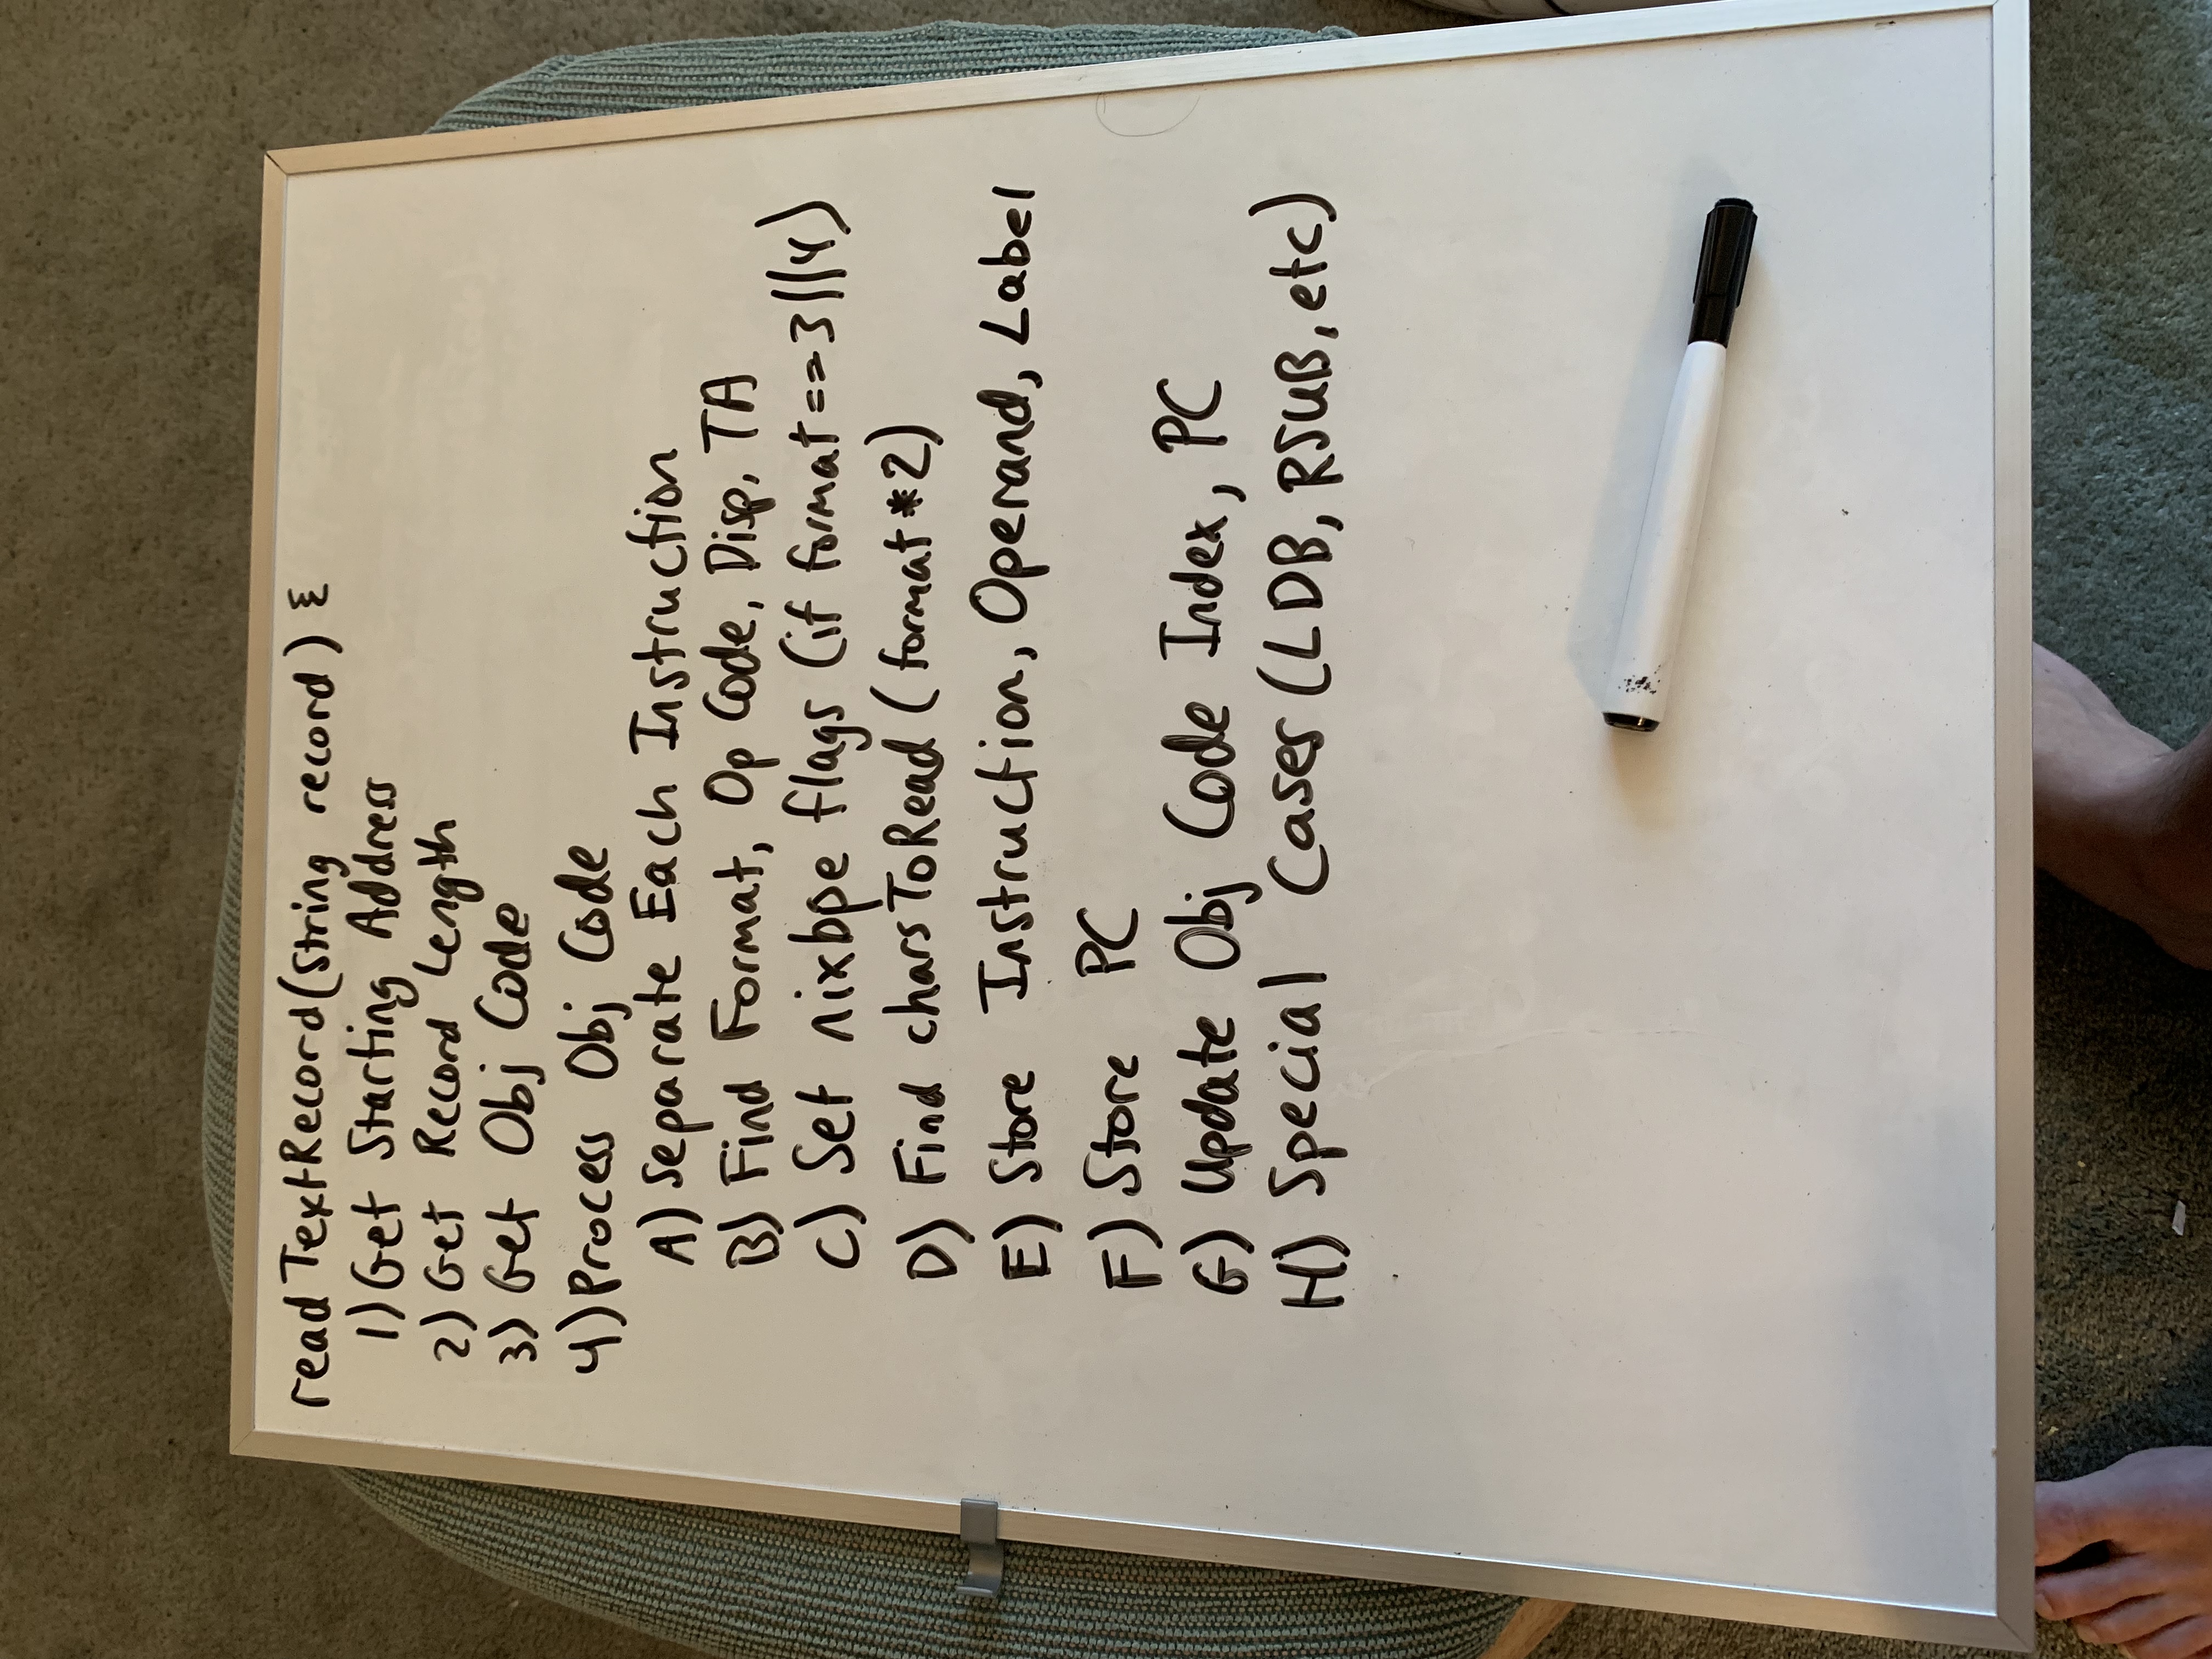 readTextRecord(String record) {
1) Get Starting Address
2) Get Record Length
3) Get Obj Code
4) Process Obj Code
A) Separate Each Instruction
B) Find Format, Op Code, Disp, TA
C) Set nixbpe flags (if format == 3||4)
D) Find charsToRead (format * 2)
E) Store Instruction, Operand, Label
F) Store PC
G) Update Obj Code Index, PC
H) Special Cases (LDB, RSUB, etc)